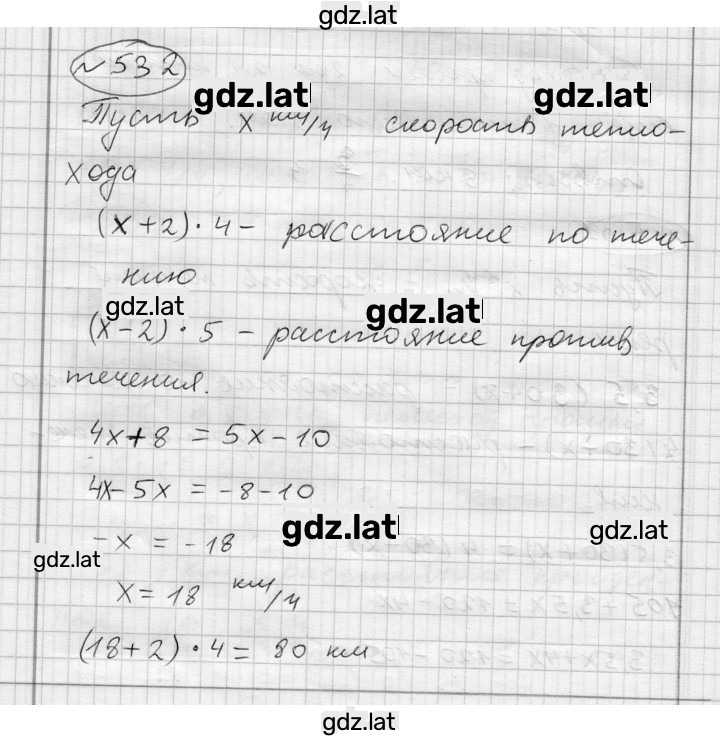 gdz.lat
№532
gdz.lat gdz.lat
Пусть x км/ч скорость тепло-
хода
(x+2)·4 - расстояние по тече-
нию
gdz.lat gdz.lat
(x-2)·5 - расстояние против
течения.
4x+8 = 5x-10
4x-5x = -8-10
gdz.lat gdz.lat
-x = -18
gdz.lat
x = 18 км/ч
(18+2)·4 = 80 км
gdz.lat